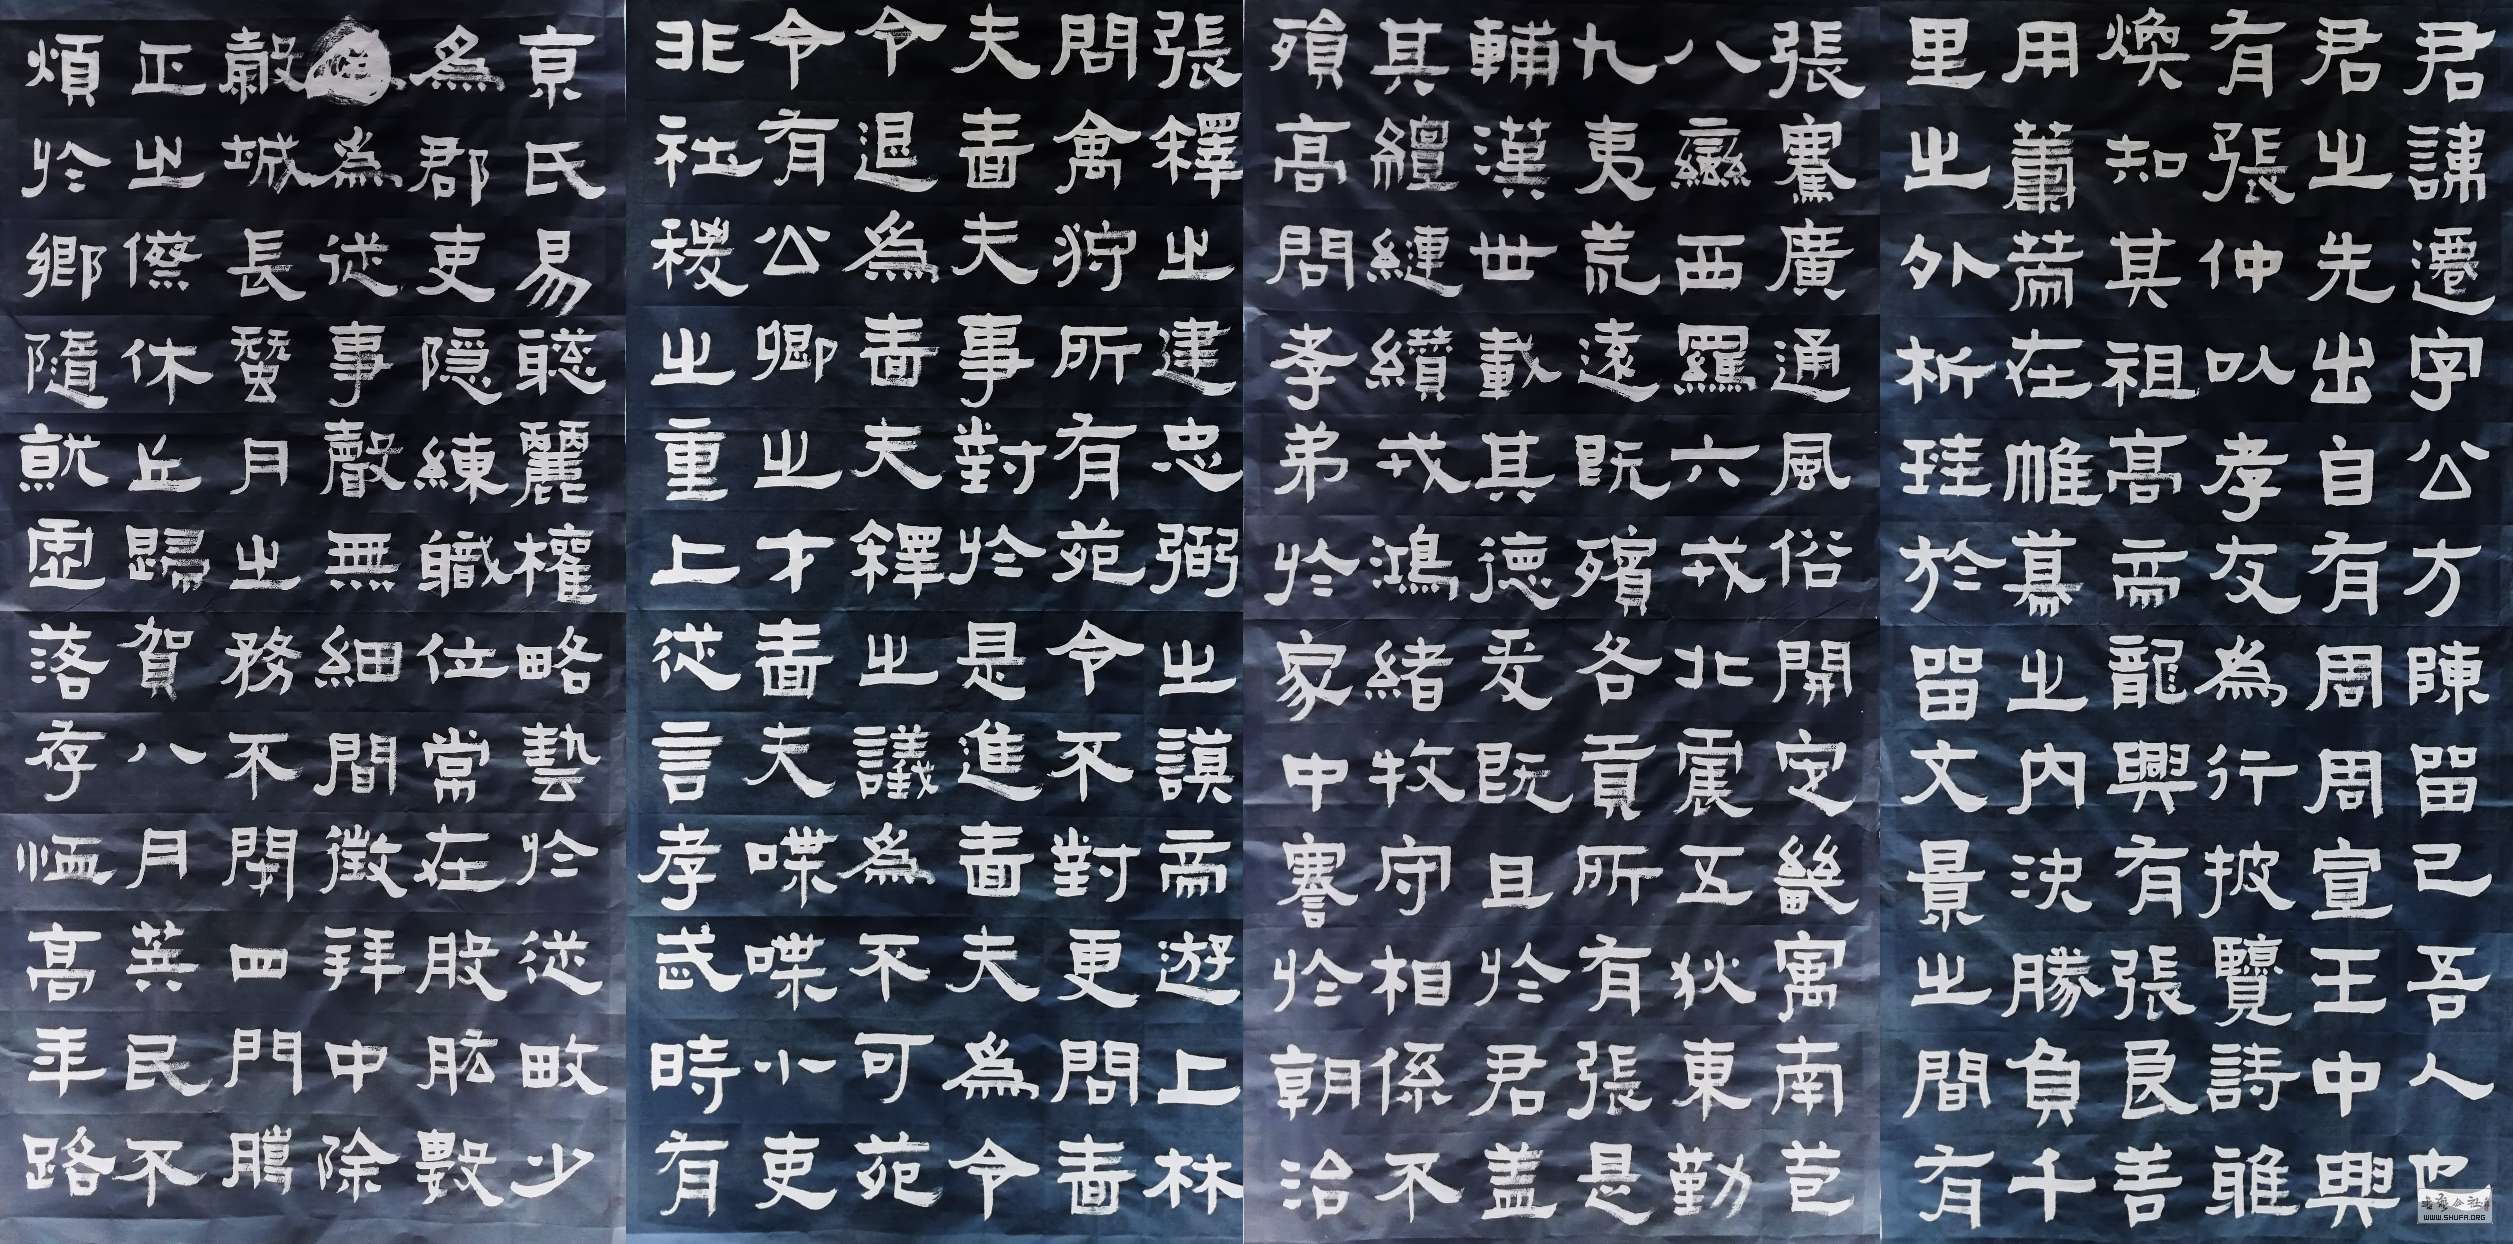 君諱遷字公方陳留己吾人也
君之先出自有周周宣王中興
有張仲以孝友為行披覽詩雅
煥知其祖高帝龍興有張良善
用籌策在帷幕之內決勝負千
里之外析珪於留文景之間有
張騫廣通風俗開定畿寓南苞
八蠻西羈六戎北震五狄東勤
九夷荒遠既殯各貢所有張是
輔漢世載其德爰既且於君蓋
其繵縺纘戎鴻緒牧守相係不
殞高問孝弟於家中謇於朝治
張釋之建忠弼之謨帝遊上林
問禽狩所有苑令不對更問嗇
夫嗇夫事對於是進嗇夫為令
令退為嗇夫釋之議為不可苑
令有公卿之才嗇夫喋喋小吏
非社稷之重上從言孝武時有
京氏易聰麗權略藝於從畋少
為郡吏隱練職位常在股肱數
為從事聲無細間徵拜中除
穀城長蠶月之務不閉四門臘
正之僚休丘歸賀八月筭民不
煩於鄉隨就虛落存恤高年路
WWW.SHUFA.ORG